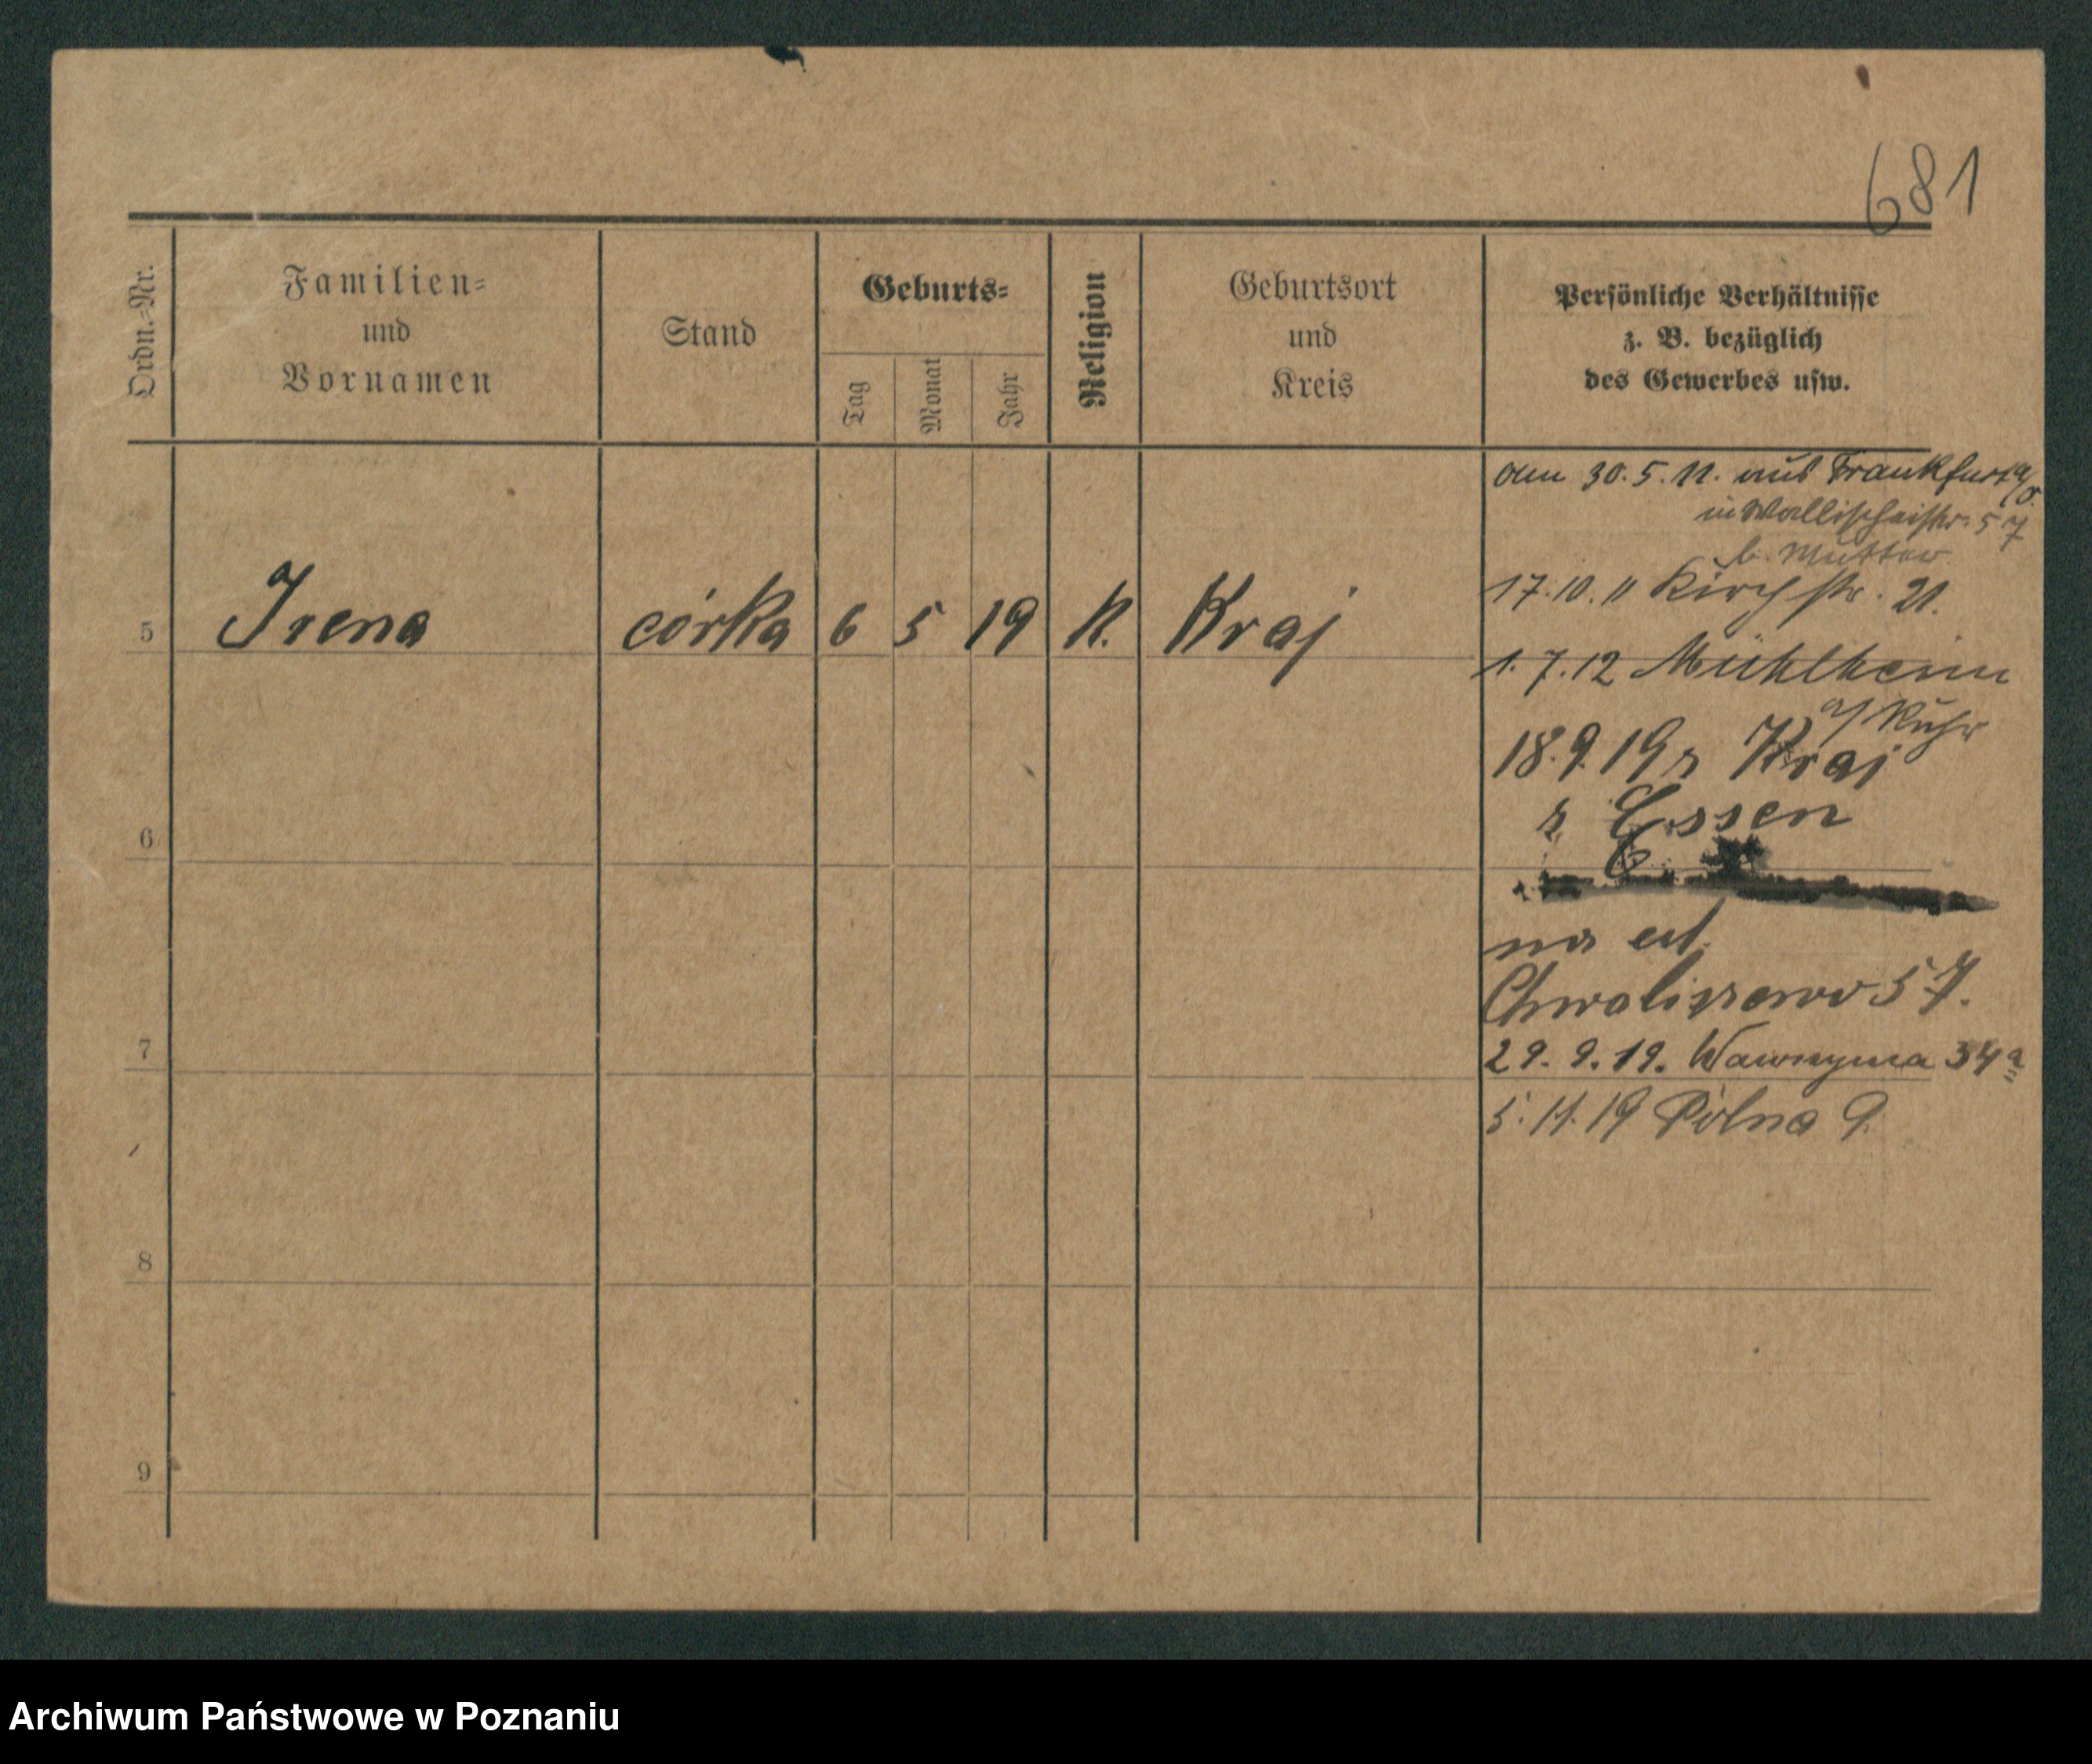 681
Ordn.-Nr.
Familien-
und
Vornamen
Stand
Geburts-
Tag
Monat
Jahr
Religion
Geburtsort
und
Kreis
Persönliche Verhältnisse
z. B. bezüglich
des Gewerbes usw.
am 30.5.11. aus Frankfurt a/O.
in Wallischeistr. 57
b. Mutter
17.10.11 Kirchstr. 21.
5 Irena córka 6 5 19 K. Kraj
1.7.12 Mühlheim
a/ Ruhr
18.9.19 z Kraj
z Essen
6
na
Chwaliszewo 57.
7
29.9.19. Wawrzyna 34a
5.11.19 Polna 9.
8
9
Archiwum Państwowe w Poznaniu